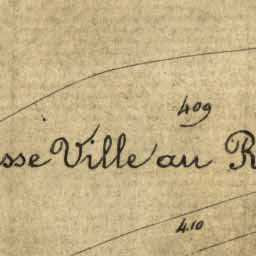 409
sse Ville au R
410